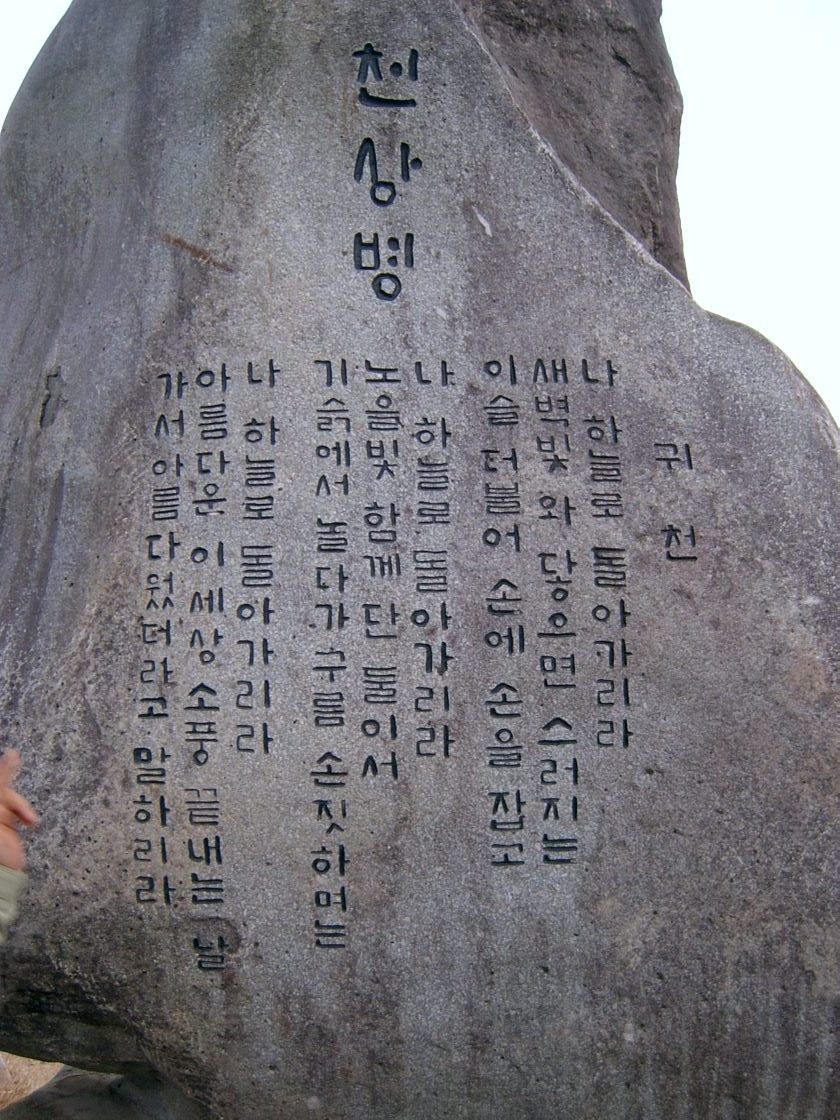 천상병
귀천
나 하늘로 돌아가리라
새벽빛 와 닿으면 스러지는
이슬 더불어 손에 손을 잡고
나 하늘로 돌아가리라
노을빛 함께 단 둘이서
기슭에서 놀다가 구름 손짓하며는
나 하늘로 돌아가리라
아름다운 이 세상 소풍 끝내는 날
가서 아름다웠더라고 말하리라